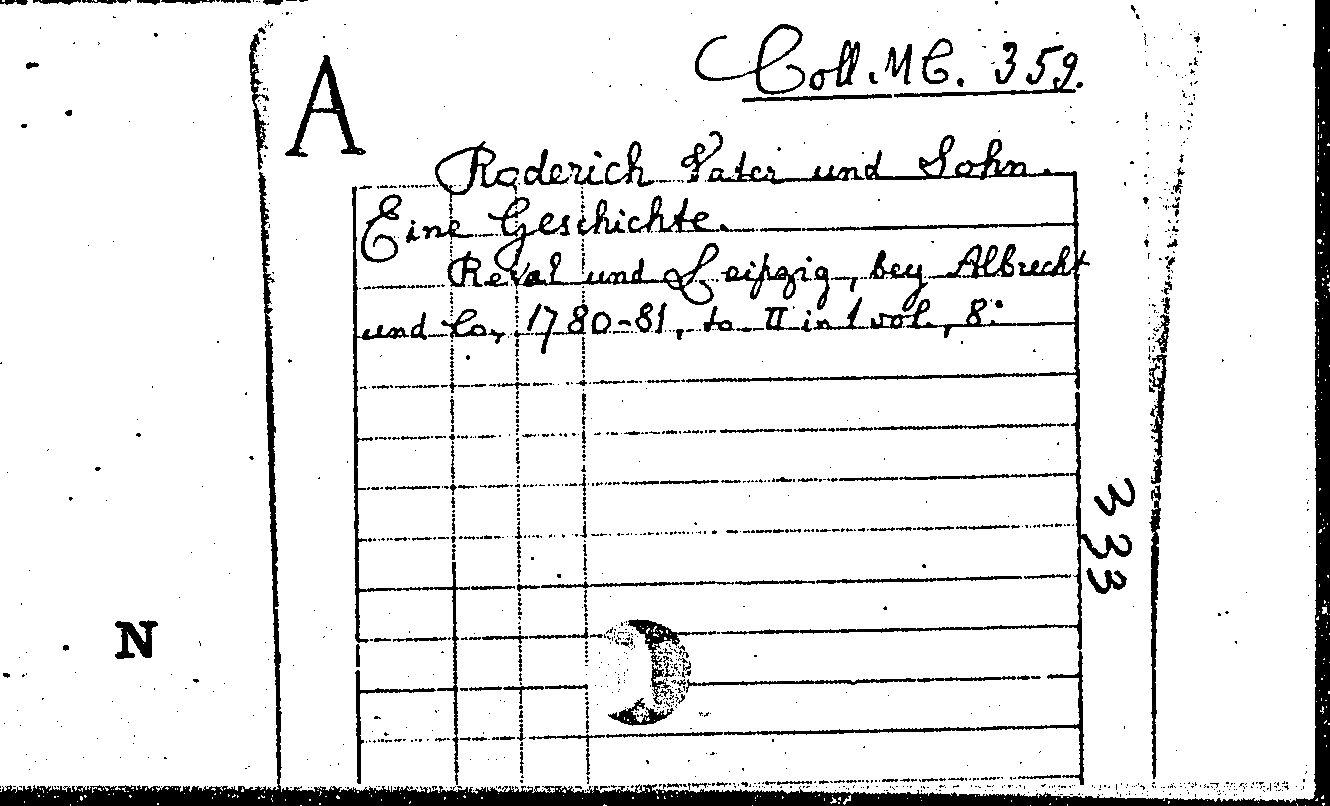 A
Coll. MC. 359.
Roderich Vater und Sohn.
Eine Geschichte.
Reval und Leipzig, bey Albrecht
und Co, 1780-81, to. II in 1 vol., 8:
333
N